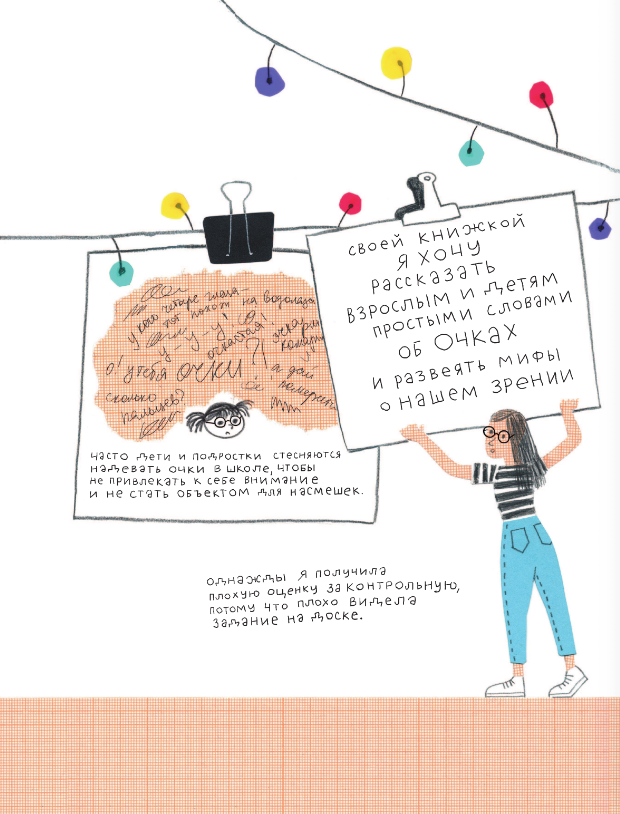 у кого четыре глаза –
тот похож на водолаза
у – у – у!
очкастая!
О! у тебя очки?!
сколько
пальцев?
а дай
померить
часто дети и подростки стесняются
надевать очки в школе, чтобы
не привлекать к себе внимание
и не стать объектом для насмешек.
своей книжкой
я хочу
рассказать
взрослым и детям
простыми словами
об очках
и развеять мифы
о нашем зрении
однажды я получила
плохую оценку за контрольную,
потому что плохо видела
задание на доске.